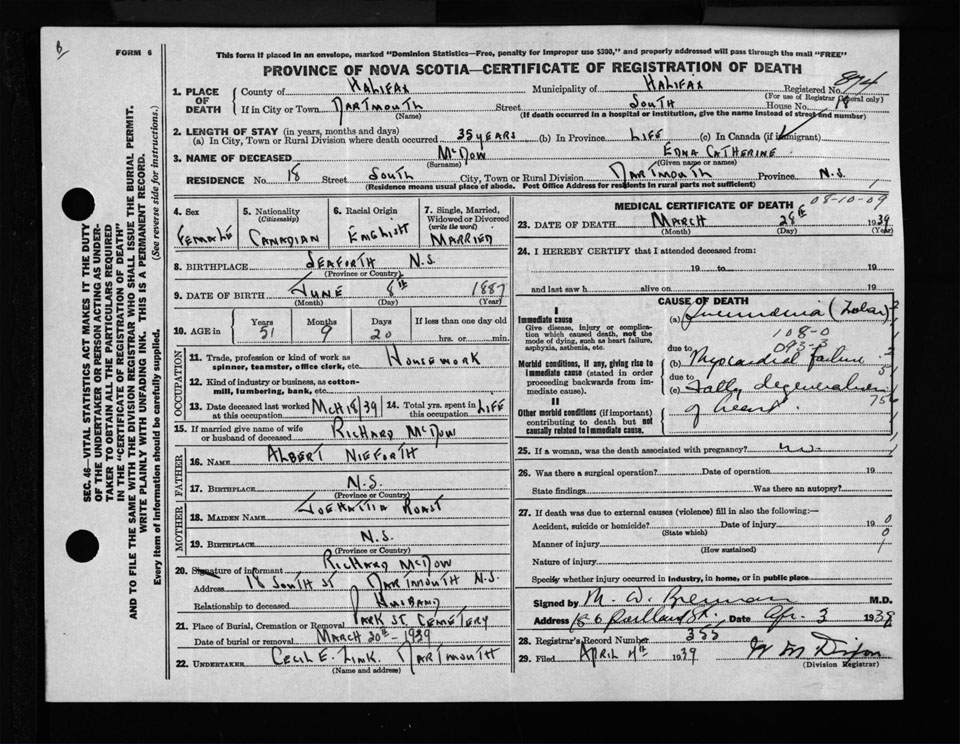 B
FORM 6
This form if placed in an envelope, marked "Dominion Statistics—Free, penalty for improper use $300," and properly addressed will pass through the mail "FREE"
PROVINCE OF NOVA SCOTIA—CERTIFICATE OF REGISTRATION OF DEATH
874
1. PLACE OF DEATH
County of HALIFAX Municipality of HALIFAX Registered No.
(For use of Registrar General only)
If in City or Town DARTMOUTH Street SOUTH House No. 18
(Name) (If death occurred in a hospital or institution, give the name instead of street and number)
2. LENGTH OF STAY (in years, months and days)
(a) In City, Town or Rural Division where death occurred 35 YEARS (b) In Province LIFE (c) In Canada (if immigrant)
3. NAME OF DECEASED McDOW EDNA CATHERINE
(Surname) (Given name or names)
RESIDENCE No. 18 Street SOUTH City, Town or Rural Division DARTMOUTH Province N.S.
(Residence means usual place of abode. Post Office Address for residents in rural parts not sufficient)
4. Sex FEMALE
5. Nationality (Citizenship) CANADIAN
6. Racial Origin ENGLISH
7. Single, Married, Widowed or Divorced (write the word) MARRIED
8. BIRTHPLACE SEAFORTH N.S.
(Province or Country)
9. DATE OF BIRTH JUNE 8TH 1887
(Month) (Day) (Year)
10. AGE in Years 51 Months 9 Days 20 If less than one day old hrs. or min.
OCCUPATION
11. Trade, profession or kind of work as spinner, teamster, office clerk, etc. HOUSEWORK
12. Kind of industry or business, as cotton-mill, lumbering, bank, etc.
13. Date deceased last worked at this occupation MCH 18/39
14. Total yrs. spent in this occupation LIFE
15. If married give name of wife or husband of deceased RICHARD McDOW
FATHER
16. NAME ALBERT NIEFORTH
17. BIRTHPLACE N.S.
(Province or Country)
MOTHER
18. MAIDEN NAME ROAST
19. BIRTHPLACE N.S.
(Province or Country)
20. Signature of informant RICHARD McDOW
Address 18 SOUTH ST DARTMOUTH N.S.
Relationship to deceased HUSBAND
21. Place of Burial, Cremation or Removal PARK ST. CEMETERY
Date of burial or removal MARCH 30TH - 1939
22. UNDERTAKER CECIL E. ZINK. DARTMOUTH
(Name and address)
MEDICAL CERTIFICATE OF DEATH
08-10-09
23. DATE OF DEATH MARCH 28th 1939
(Month) (Day) (Year)
24. I HEREBY CERTIFY that I attended deceased from:
19 to 19
and last saw h alive on 19
CAUSE OF DEATH
I
Immediate cause
Give disease, injury or complication which caused death, not the mode of dying, such as heart failure, asphyxia, asthenia, etc.
(a) Pneumonia (Lobar)
108-0
due to 093-3
Morbid conditions, if any, giving rise to immediate cause (stated in order proceeding backwards from immediate cause).
(b) Myocardial failure
due to
(c) Fatty degeneration of heart
II
Other morbid conditions (if important) contributing to death but not causally related to immediate cause.
25. If a woman, was the death associated with pregnancy? no.
26. Was there a surgical operation? Date of operation 19
State findings Was there an autopsy?
27. If death was due to external causes (violence) fill in also the following:—
Accident, suicide or homicide? Date of injury 19
(State which)
Manner of injury
(How sustained)
Nature of injury
Specify whether injury occurred in industry, in home, or in public place
Signed by M. D. Brennan M.D.
Address 86 Portland St. Date Apr. 3 1939
28. Registrar's Record Number 355
29. Filed APRIL 4TH 1939
(Division Registrar)
SEC. 46—VITAL STATISTICS ACT MAKES IT THE DUTY
OF THE UNDERTAKER OR PERSON ACTING AS UNDER-
TAKER TO OBTAIN ALL THE PARTICULARS REQUIRED
IN THE "CERTIFICATE OF REGISTRATION OF DEATH"
AND TO FILE THE SAME WITH THE DIVISION REGISTRAR WHO SHALL ISSUE THE BURIAL PERMIT.
WRITE PLAINLY WITH UNFADING INK. THIS IS A PERMANENT RECORD.
Every item of information should be carefully supplied. (See reverse side for instructions.)